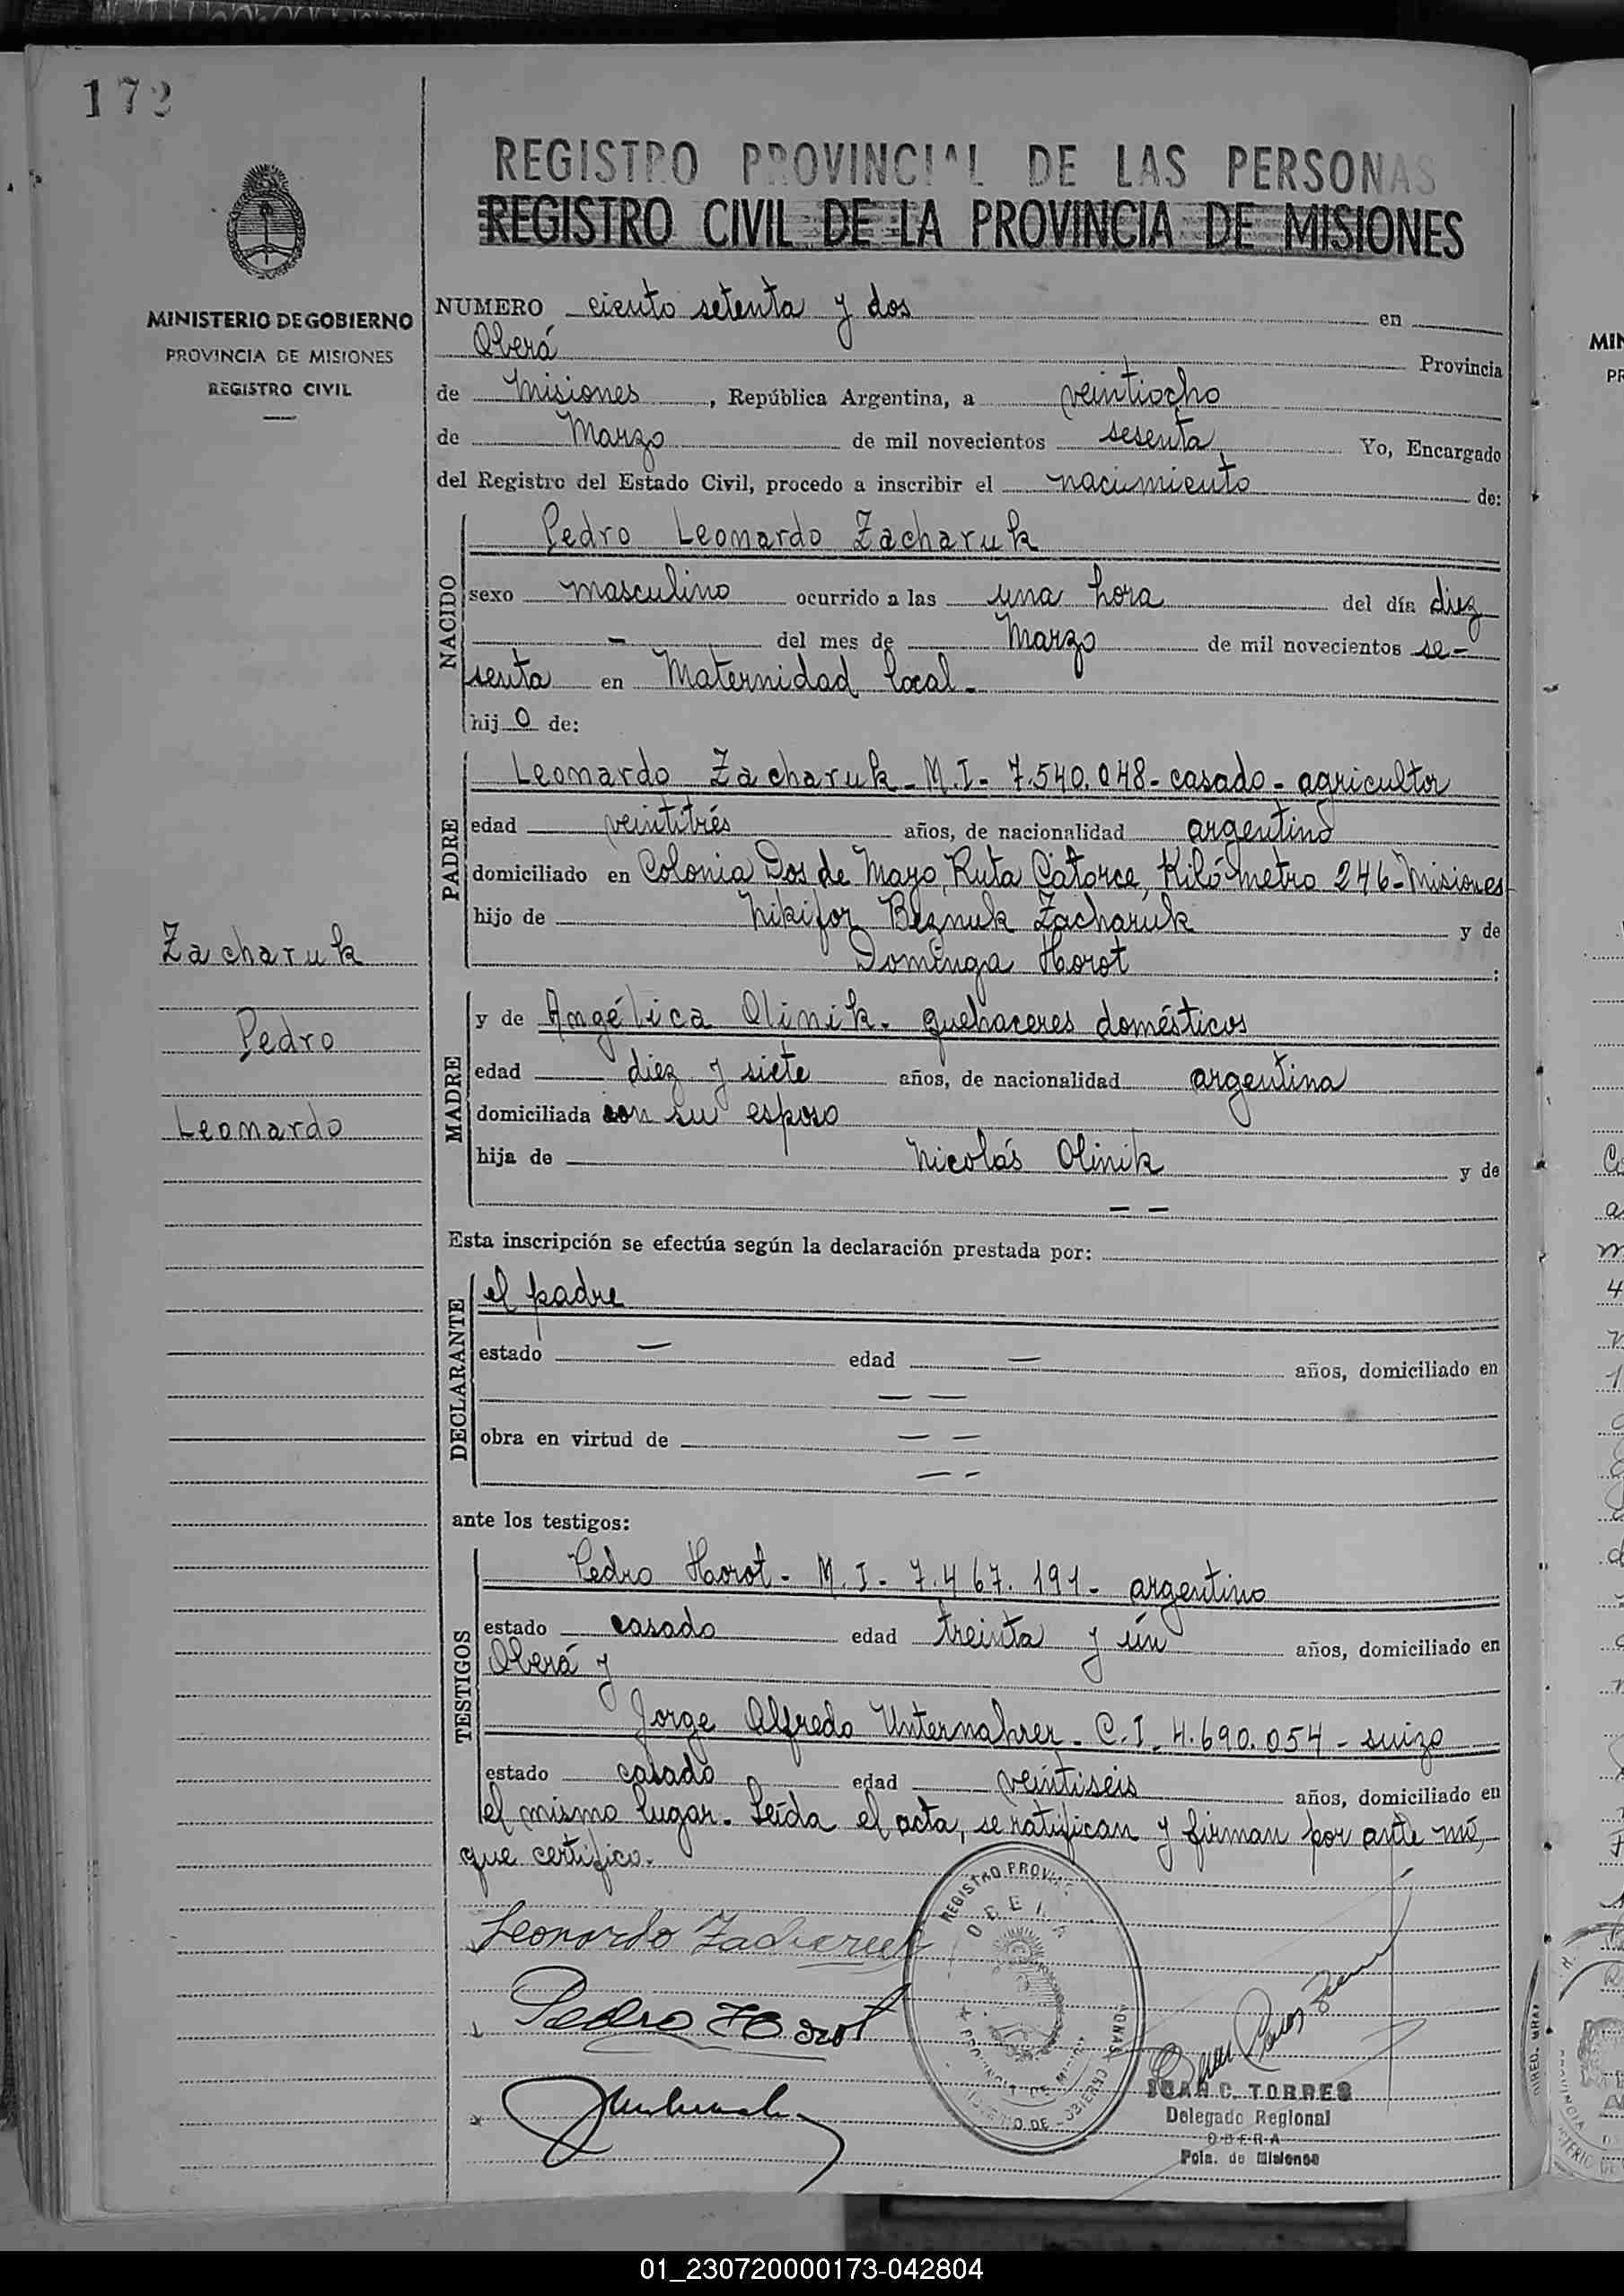 172
REGISTRO PROVINCIAL DE LAS PERSONAS
REGISTRO CIVIL DE LA PROVINCIA DE MISIONES
MINISTERIO DE GOBIERNO
PROVINCIA DE MISIONES
REGISTRO CIVIL
NUMERO ciento setenta y dos en
Oberá Provincia
de Misiones, República Argentina, a veintiocho
de Marzo de mil novecientos sesenta Yo, Encargado
del Registro del Estado Civil, procedo a inscribir el nacimiento de:
NACIDO
Pedro Leonardo Zacharuk
sexo masculino ocurrido a las una hora del día diez
— del mes de Marzo de mil novecientos se-
senta en Maternidad local.-
hijo de:
PADRE
Leonardo Zacharuk - M.I- 7.540.048- casado - agricultor
edad veintitrés años, de nacionalidad argentino
domiciliado en Colonia Dos de Mayo, Ruta Catorce, Kilómetro 246-Misiones
hijo de Nikifor Beznuk Zacharuk y de
Dominga Horot ;
Zacharuk
Pedro
Leonardo
MADRE
y de Angélica Olinik. quehaceres domésticos
edad diez y siete años, de nacionalidad argentina
domiciliada con su esposo
hija de Nicolás Olinik y de
— —
Esta inscripción se efectúa según la declaración prestada por:
DECLARANTE
el padre
estado — edad — años, domiciliado en
— —
obra en virtud de — —
— -
ante los testigos:
TESTIGOS
Pedro Horot - M.I- 7.467.191- argentino
estado casado edad treinta y ún años, domiciliado en
Oberá y
Jorge Alfredo Unternahrer - C.I- 4.690.054 - suizo
estado casado edad veintiseis años, domiciliado en
el mismo lugar. Leída el acta, se ratifican y firman por ante mí,
que certifico.
Leonardo Zacharuk
Pedro Horot
REGISTRO PROVIN
OBERA
JUAN C. TORRES
Delegado Regional
OBERA
Pcia. de Misiones
01_230720000173-042804